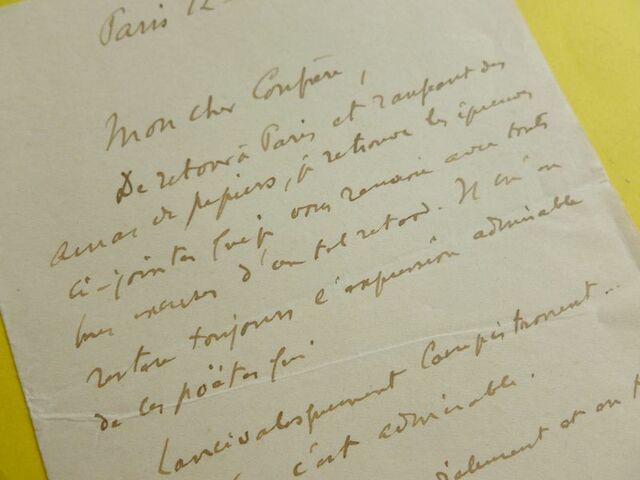 Paris 12-
Mon cher Confrère,
De retour à Paris et rangeant des
amas de papiers, je retrouve les épreuves
ci-jointes que je vous renvoie avec toutes
mes excuses d'un tel retard. Il m'en
restera toujours l'expression admirable
de ces poëtes qui
Lancivalesquement Campistronent...
c'est admirable.
et